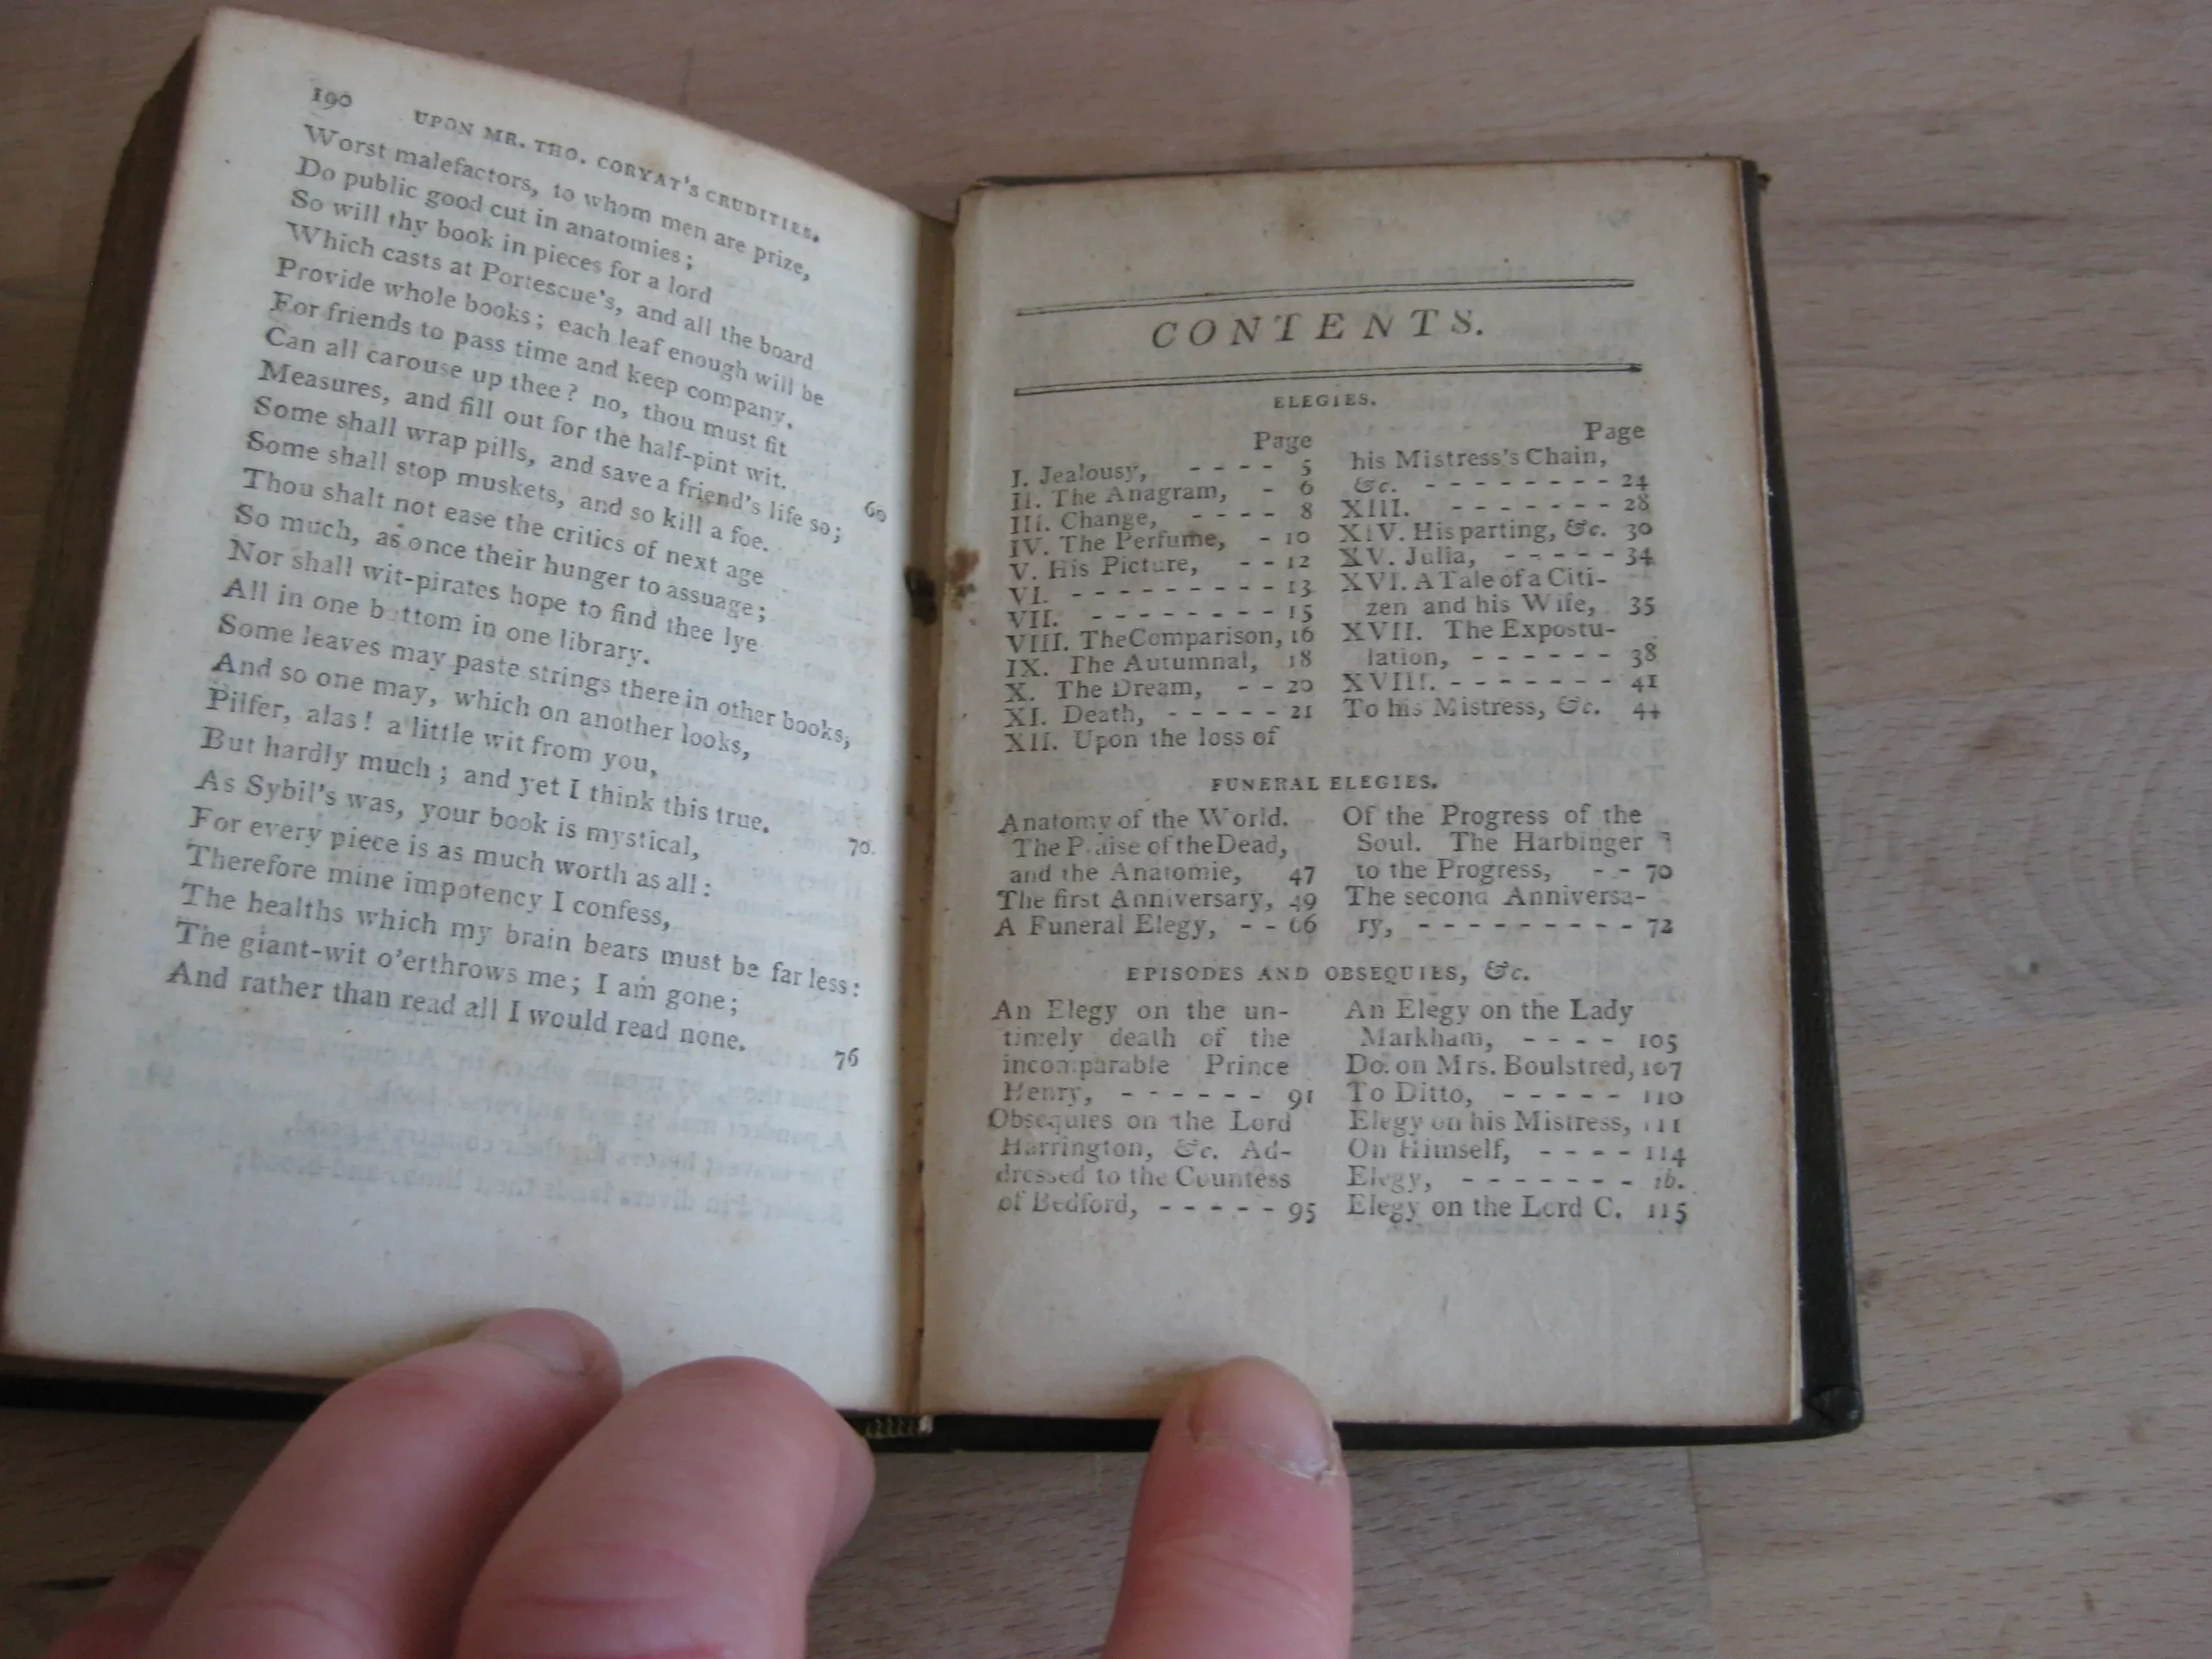 190 UPON MR. THO. CORYAT'S CRUDITIES.
Worst malefactors, to whom men are prize,
Do public good cut in anatomies;
So will thy book in pieces for a lord
Which casts at Portescue's, and all the board
Provide whole books; each leaf enough will be
For friends to pass time and keep company.
Can all carouse up thee? no, thou must fit
Measures, and fill out for the half-pint wit.
Some shall wrap pills, and save a friend's life so; 60
Some shall stop muskets, and so kill a foe.
Thou shalt not ease the critics of next age
So much, as once their hunger to assuage;
Nor shall wit-pirates hope to find thee lye
All in one bottom in one library.
Some leaves may paste strings there in other books,
And so one may, which on another looks,
Pilfer, alas! a little wit from you,
But hardly much; and yet I think this true.
As Sybil's was, your book is mystical, 70
For every piece is as much worth as all:
Therefore mine impotency I confess,
The healths which my brain bears must be far less:
The giant-wit o'erthrows me; I am gone;
And rather than read all I would read none. 76
CONTENTS.
ELEGIES.
Page
I. Jealousy, - - - - 5
II. The Anagram, - 6
III. Change, - - - - 8
IV. The Perfume, - 10
V. His Picture, - - 12
VI. - - - - - - - - - 13
VII. - - - - - - - - 15
VIII. The Comparison, 16
IX. The Autumnal, 18
X. The Dream, - - 20
XI. Death, - - - - - 21
XII. Upon the loss of
Page
his Mistress's Chain,
&c. - - - - - - - - 24
XIII. - - - - - - - 28
XIV. His parting, &c. 30
XV. Julia, - - - - - 34
XVI. A Tale of a Citi-
zen and his Wife, 35
XVII. The Expostu-
lation, - - - - - - 38
XVIII. - - - - - - - 41
To his Mistress, &c. 44
FUNERAL ELEGIES.
Anatomy of the World.
The Praise of the Dead,
and the Anatomie, 47
The first Anniversary, 49
A Funeral Elegy, - - 66
Of the Progress of the
Soul. The Harbinger
to the Progress, - - 70
The second Anniversa-
ry, - - - - - - - - - 72
EPISODES AND OBSEQUIES, &c.
An Elegy on the un-
timely death of the
incomparable Prince
Henry, - - - - - - 91
Obsequies on the Lord
Harrington, &c. Ad-
dressed to the Countess
of Bedford, - - - - - 95
An Elegy on the Lady
Markham, - - - - 105
Do. on Mrs. Boulstred, 107
To Ditto, - - - - - 110
Elegy on his Mistress, 111
On Himself, - - - - 114
Elegy, - - - - - - - ib.
Elegy on the Lord C. 115